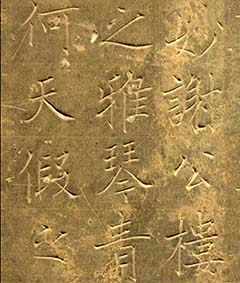 謝公樓
之雅琴青
何天假之